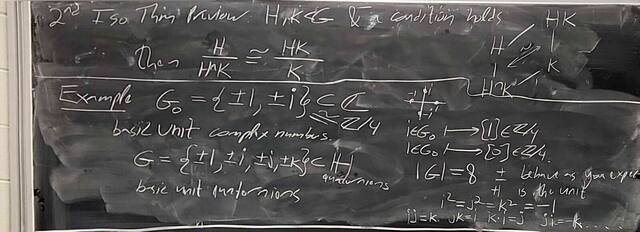 2nd Iso Thm Preview. H, K < G & a condition holds
Then H/H∩K ≅ HK/K
HK
H
K
H∩K
Example G₀ = {±1, ±i} ⊂ ℂ
≅ ℤ/4
basic unit complex numbers.
i∈G₀ ↦ [1]∈ℤ/4
1∈G₀ ↦ [0]∈ℤ/4
G = {±1, ±i, ±j, ±k} ⊂ ℍ
quaternions
basic unit quaternions
|G| = 8 ± behave as you expect
+1 is the unit
i² = j² = k² = -1
ij=k. jk=i k·i=j ji=-k...